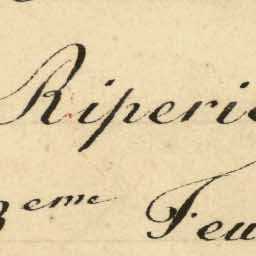 Riperie
3eme Feu